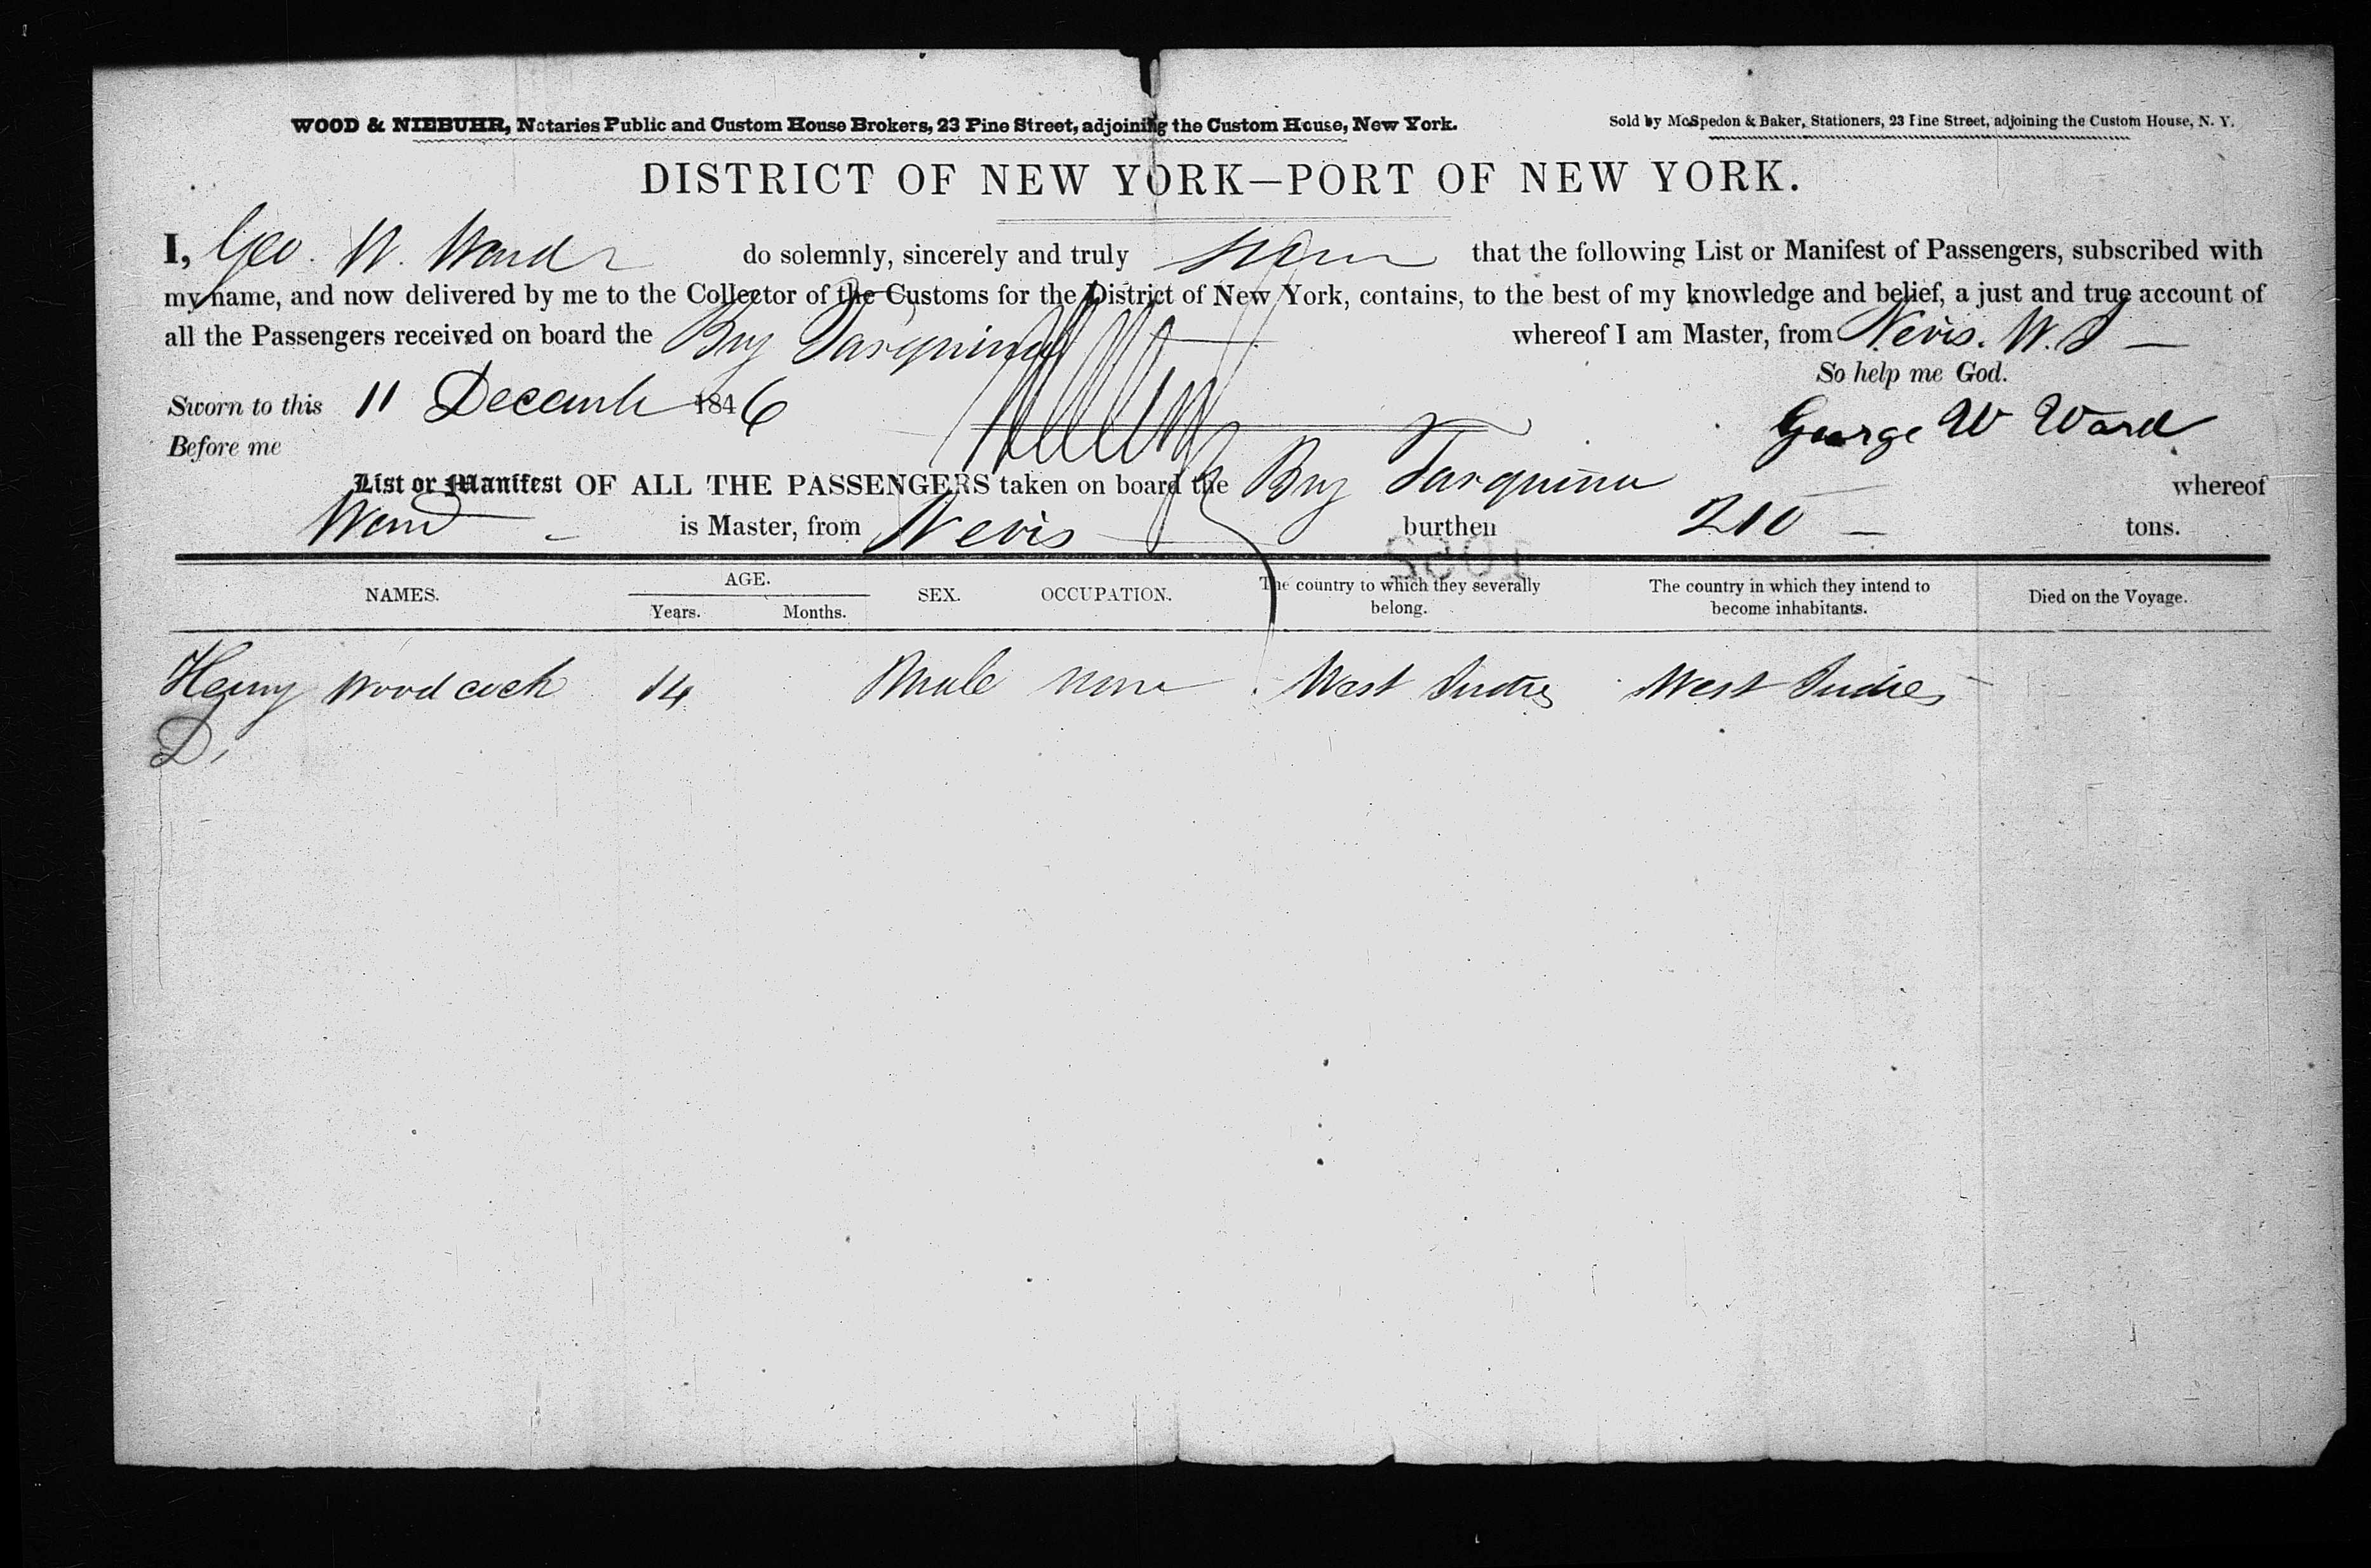 WOOD & NIEBUHR, Notaries Public and Custom House Brokers, 23 Pine Street, adjoining the Custom House, New York.
Sold by McSpedon & Baker, Stationers, 23 Pine Street, adjoining the Custom House, N. Y.
DISTRICT OF NEW YORK—PORT OF NEW YORK.
I, Geo. W. Ward do solemnly, sincerely and truly that the following List or Manifest of Passengers, subscribed with
my name, and now delivered by me to the Collector of the Customs for the District of New York, contains, to the best of my knowledge and belief, a just and true account of
all the Passengers received on board the Brig whereof I am Master, from Nevis. W. I
So help me God.
Sworn to this 11 Decemb 1846
George W Ward
Before me
List or Manifest OF ALL THE PASSENGERS taken on board the Brig whereof
Ward is Master, from Nevis burthen 210 tons.
NAMES. AGE. SEX. OCCUPATION. The country to which they severally belong. The country in which they intend to become inhabitants. Died on the Voyage.
Years. Months.
Henry Woodcock 14 Male none West Indies West Indies